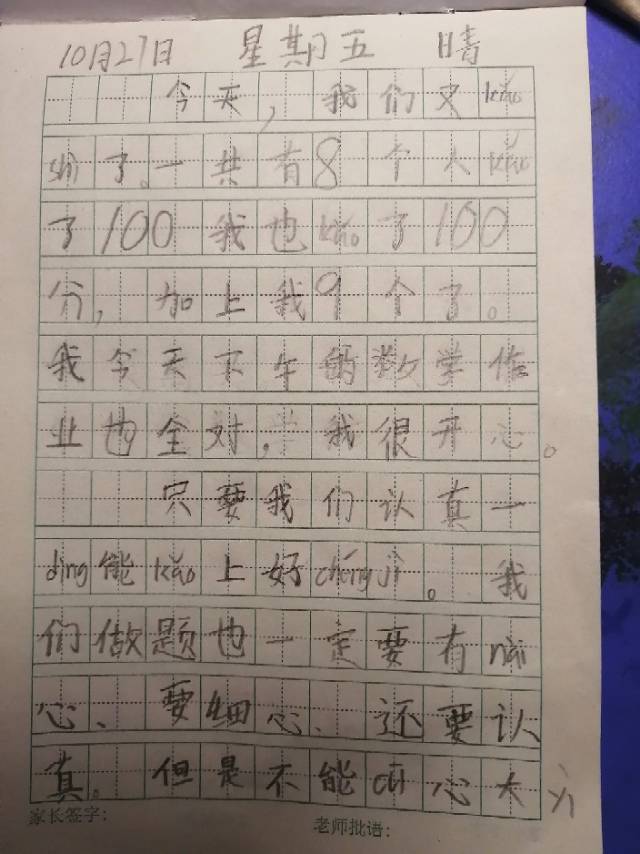 10月27日 星期五 晴
今天,我们又kǎo
shì了。一共有8个人kǎo
了100我也kǎo了100
分,加上我9个了。
我今天下午的数学作
业也全对,我很开心。
只要我们认真一
dìng能kǎo上好chéngjì。我
们做题也一定要有nài
心、要细心、还要认
真。但是不能cū心大yì
家长签字:
老师批语: